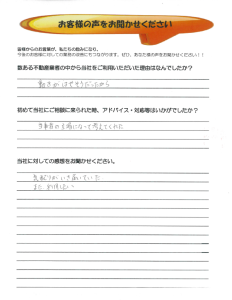 お客様の声をお聞かせください
皆様からのお言葉が、私たちの励みになり、
今後のお客様に対しての業務の改善にもつながります。ぜひ、あなた様の声をお聞かせください！！
数ある不動産業者の中から当社をご利用いただいた理由はなんでしたか？
動きがはやそうだったから
初めて当社にご相談に来られた時、アドバイス・対応等はいかがでしたか？
当事者の立場になって考えてくれた
当社に対しての感想をお聞かせください。
気配りがいき届いていた
また、利用したい